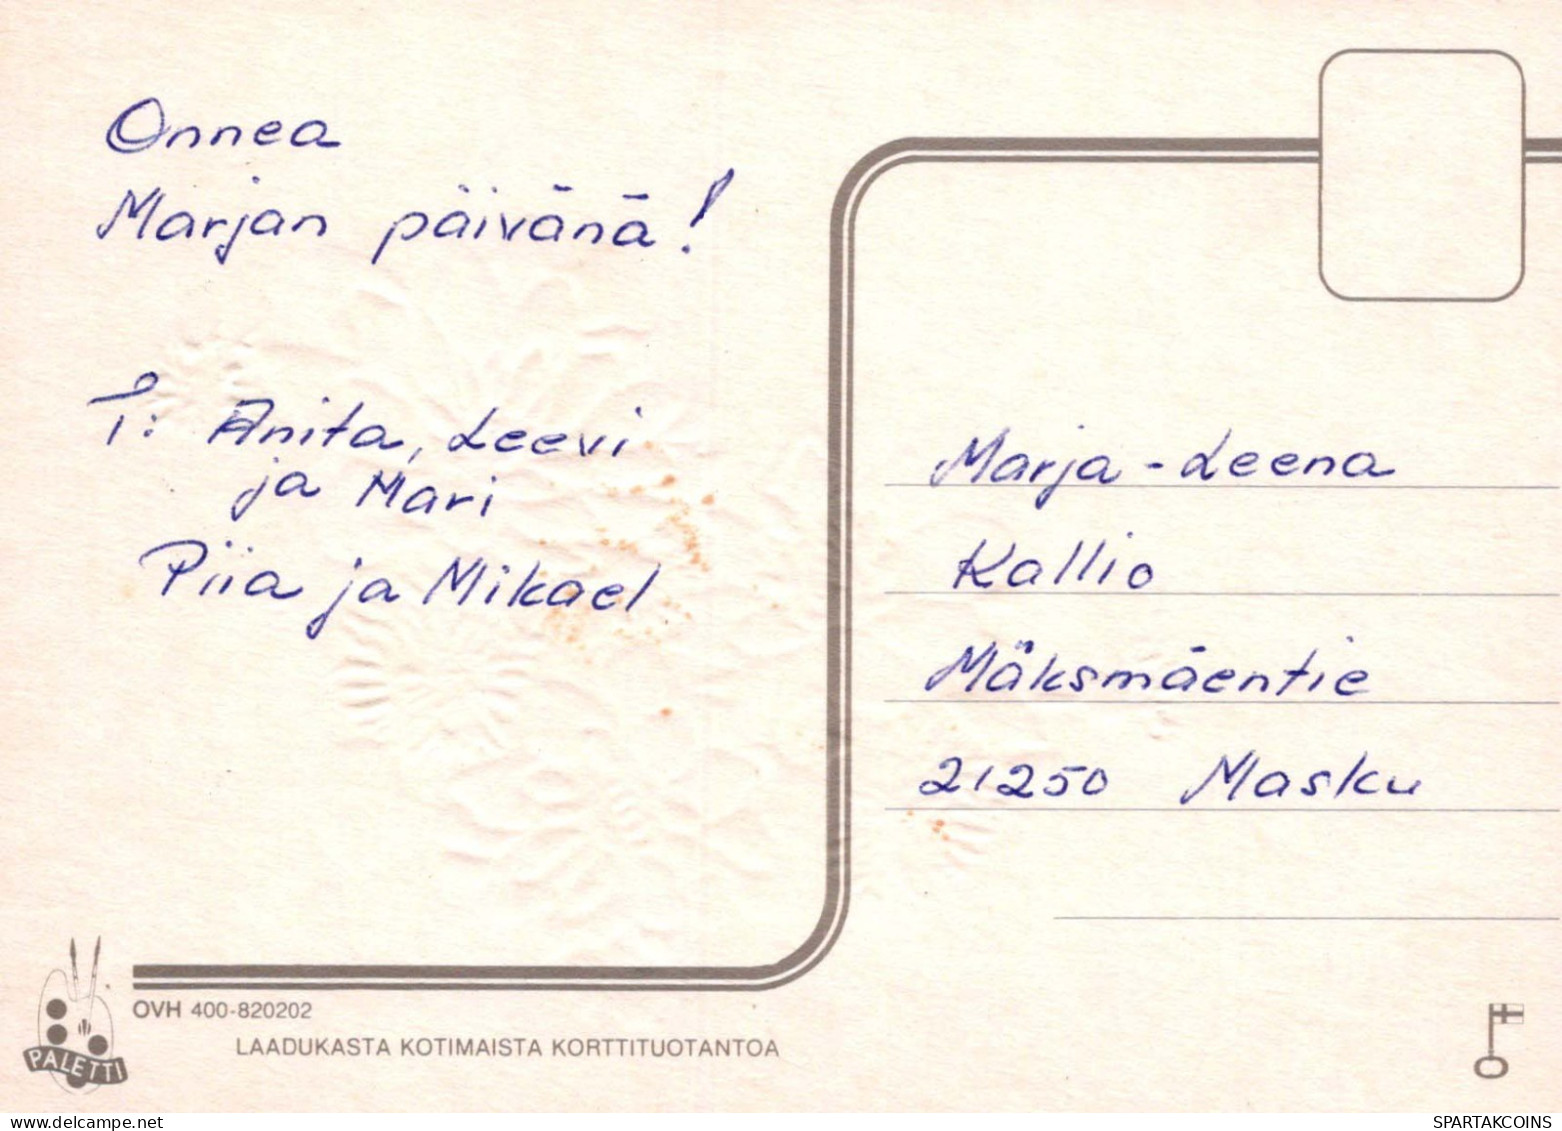 Onnea
Marjan päivänä!
T: Anita, Leevi
ja Mari
Piia ja Mikael
Marja-Leena
Kallio
Mäksmäentie
21250 Masku
OVH 400-820202
LAADUKASTA KOTIMAISTA KORTTITUOTANTOA
PALETTI
SPARTAKCOINS